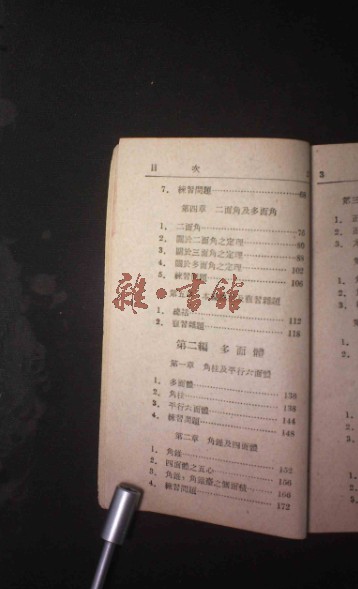 目 次 2
7. 練習問題 68
第四章 二面角及多面角
1. 二面角 76
2. 關於二面角之定理 80
3. 關於三面角之定理 88
4. 關於多面角之定理 102
5. 練習問題 106
雜·書館
1. 總括 112
2. 復習雜題 118
第二編 多面體
第一章 角柱及平行六面體
1. 多面體 136
2. 角柱 138
3. 平行六面體 144
4. 練習問題 148
第二章 角錐及四面體
1. 角錐 152
2. 四面體之五心 156
3. 角錐,角錐臺之體面積 166
4. 練習問題 172
3